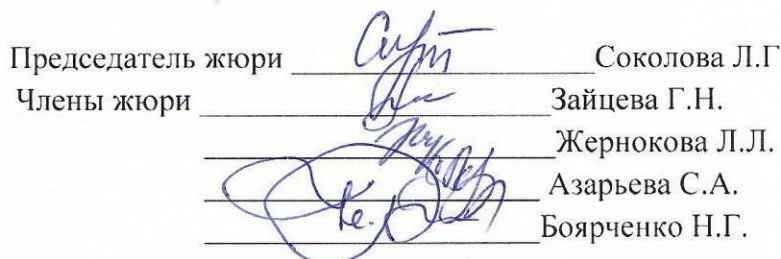 Председатель жюри Соколова Л.Г
Члены жюри Зайцева Г.Н.
Жернокова Л.Л.
Азарьева С.А.
Боярченко Н.Г.